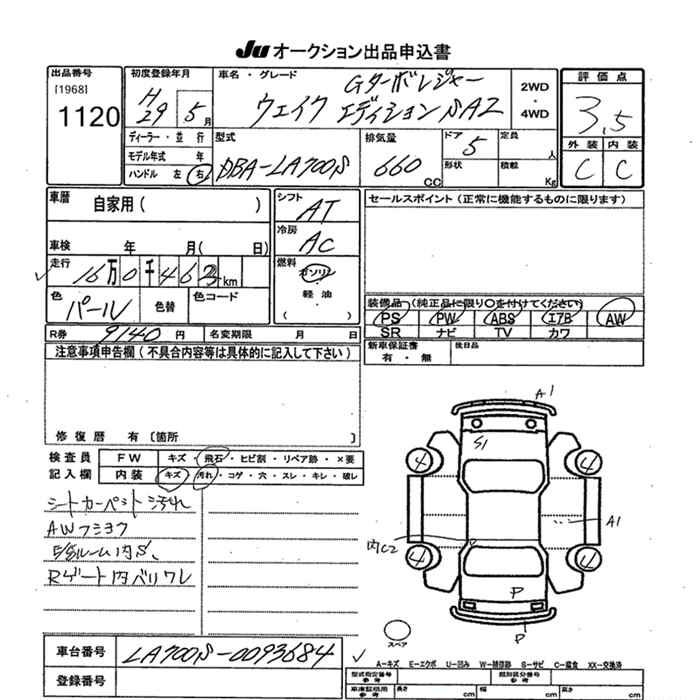 JU オークション出品申込書
出品番号
[1968]
1120
初度登録年月
H29 5月
車名・グレード
Gターボレジャー
ウェイク エディションSAⅡ
2WD
・
4WD
評価点
3.5
外装 内装
C C
ディーラー・並行
モデル年式 年
ハンドル 左 右
型式
DBA-LA700S
排気量
660 CC
ドア 5
形状
定員 人
積載 Kg
車歴
自家用( )
車検 年 月( 日)
走行
16万0千463km
色
パール
色替
色コード
シフト
AT
冷房
AC
燃料
ガソリン
軽油
( )
セールスポイント(正常に機能するものに限ります)
装備品(純正品に限り〇を付けてください)
PS PW ABS エアB AW
SR ナビ TV カワ
R券 9140 円 名変期限 月 日
新車保証書
有・無
後日品
注意事項申告欄(不具合内容等は具体的に記入して下さい)
修復歴 有〔箇所 〕
検査員
記入欄
FW キズ・飛石・ヒビ割・リペア跡・×要
内装 キズ・汚れ・コゲ・穴・スレ・キレ・破レ
シートカーペット汚れ
AWフショク
Rゲート内バリワレ
A1
S1
4 4
A1
内C2
4 4
P
P
スペア
車台番号 LA700S-0093684
登録番号
A-キズ E-エクボ U-凹み W-補修跡 S-サビ C-腐食 XX-交換済
型式指定番号
参考
類別区分番号
参考
車庫証明用
参考
長さ cm 幅 cm 高さ cm